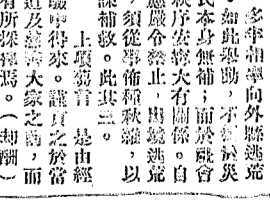 多牢相率向外縣逃荒
。如此舉動，不惟於災
民本身無補；而於社會
秩序安甯大有關係。自
應嚴令禁止，出境逃荒
，須從事佈種秋雜，以
謀補救。此其三。
上項芻言　是由經
驗中得來。謹貢之於當
道及慈善大家之前，而
有所採擇焉。（却酬）